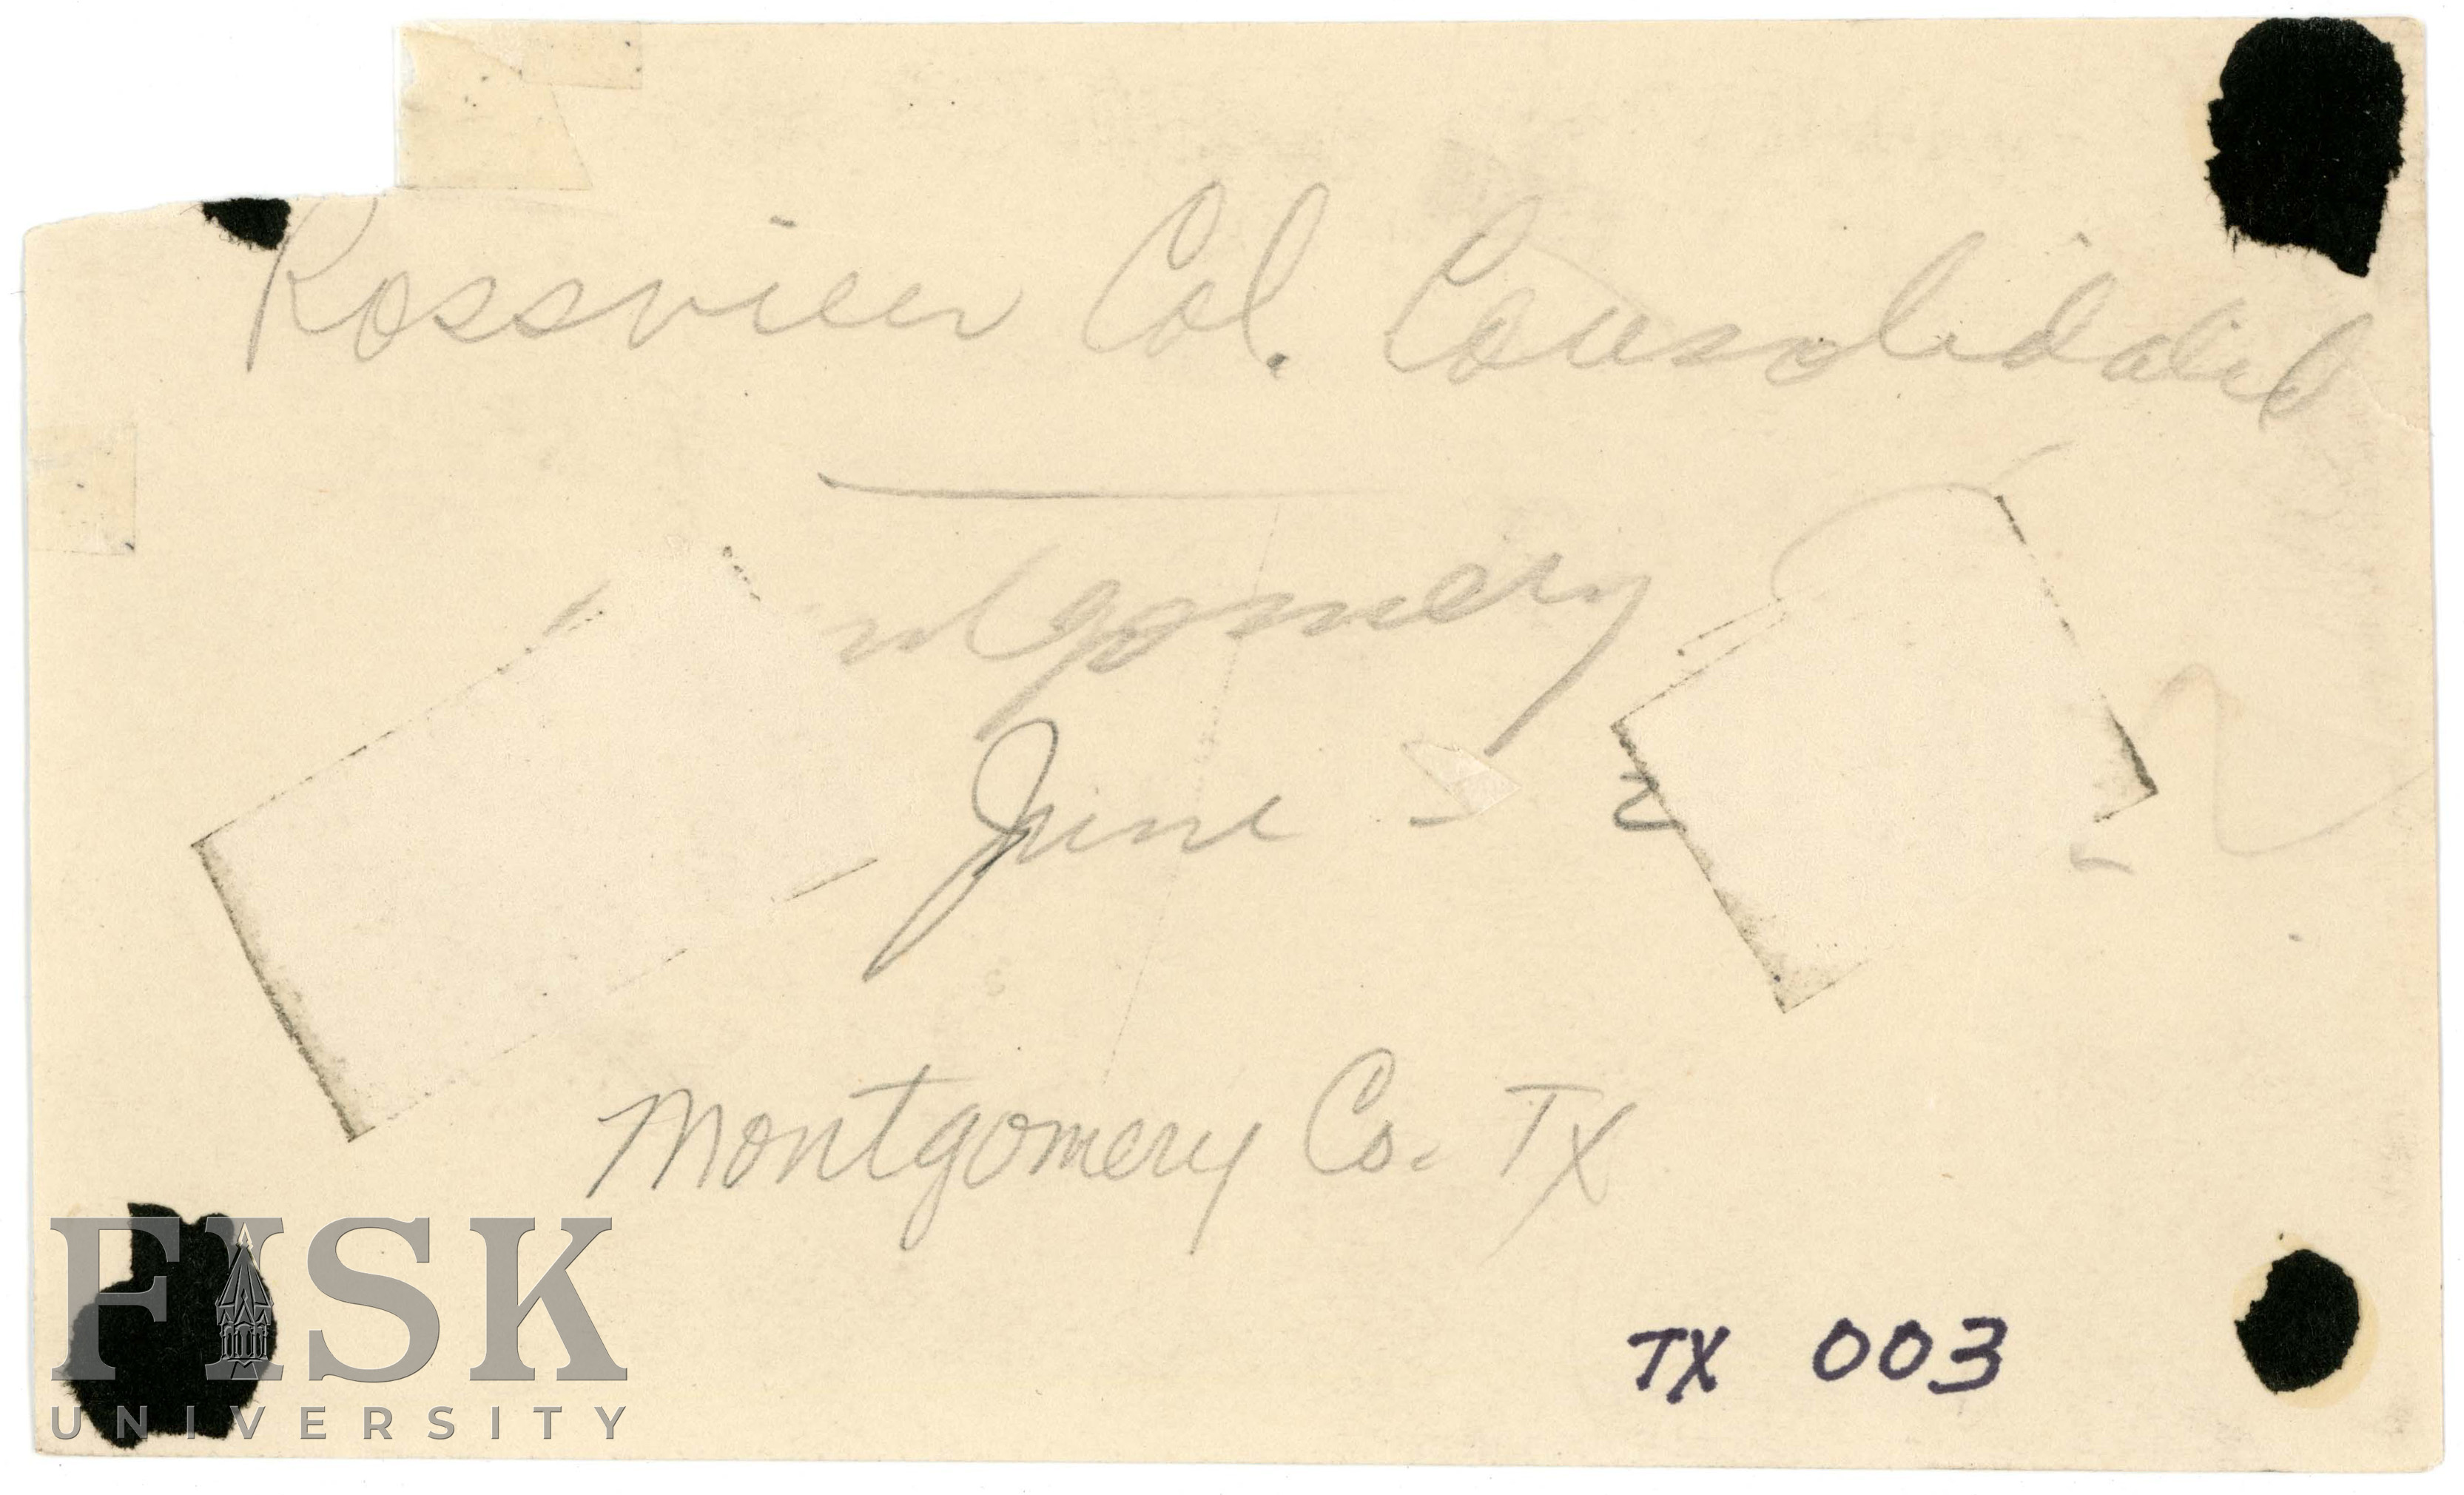 Rossview Col. Consolidated
ntgomery
June
Montgomery Co. TX
TX 003
FISK
UNIVERSITY